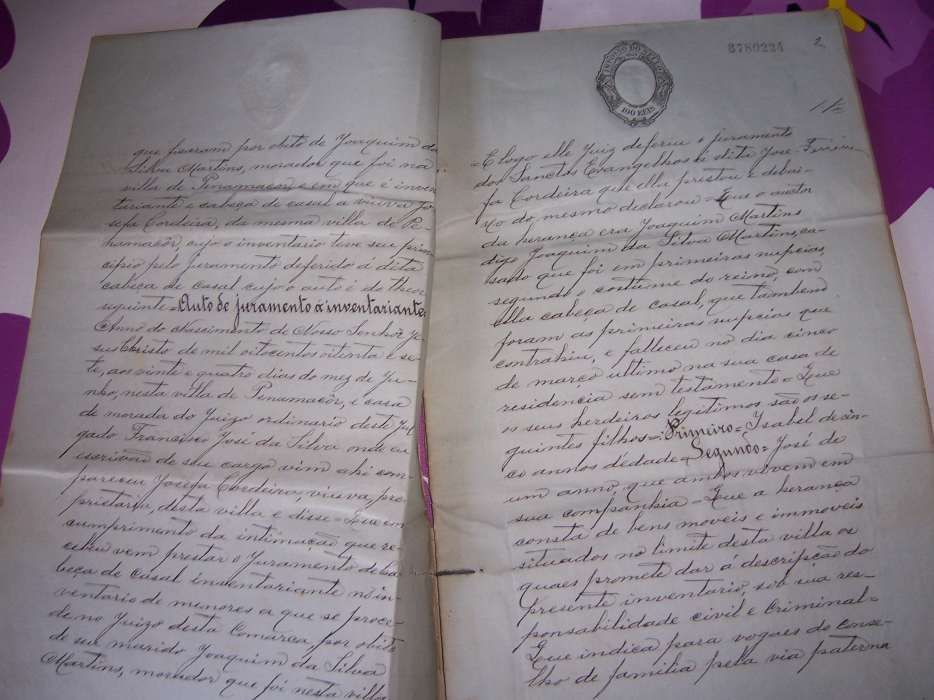 que fizeram por obito de Joaquim da
Silva Martins, morador que foi na
villa de Penamacôr, e em que é inven-
tariante e cabeça de casal a viuva Jo-
sefa Cordeira, da mesma villa de Pe-
namacôr, cujo o inventario teve seu prin-
cipio pelo juramento deferido á dita
cabeça de casal cujo o auto é do theor
seguinte = Auto de juramento á inventariante
Anno do Nascimento de Nosso Senhor Je-
sus Christo de mil oitocentos oitenta e se-
te, aos vinte e quatro dias do mez de Ju-
nho, nesta villa de Penamacôr, e casa
de morada do Juizo ordinario deste Jul-
gado Francisco José da Silva onde eu
escrivão de seu cargo vim ahi com-
pareceu Josefa Cordeira, viuva, pro-
prietaria, desta villa e disse = Que em
cumprimento da intimação que re-
cebeu vem prestar o Juramento de ca-
beça de casal inventariante no in-
ventario de menores a que se proce-
de no Juizo desta Comarca por obito
de seu marido Joaquim da Silva
Martins, morador que foi nesta villa
IMPOSTO DO SELLO
100 REIS
8780224
2
= E logo elle Juiz deferiu o juramento
dos Sanctos Evangelhos á dita José-
fa Cordeira que ella prestou e debai-
xo do mesmo declarou = Que o auctor
da herança era Joaquim Martins
digo Joaquim da Silva Martins, ca-
sado que foi em primeiras nupcias,
segundo o costume do reino, com
ella cabeça de casal, que tambem
foram as primeiras nupcias que
contrahiu, e falleceu no dia cinco
de março ultimo na sua casa de
residencia sem testamento = Que
os seus herdeiros legitimos são os se-
guintes filhos = Primeiro = Isabel de cin-
co annos d'edade = Segundo = José de
um anno, que ambos vivem em
sua companhia = Que a herança
consta de bens moveis e immoveis
situados no limite desta villa os
quaes promete dar á descripção do
presente inventario, sob sua res-
ponsabilidade civil e Criminal =
Que indica para vogaes do conse-
lho de familia pella via paterna